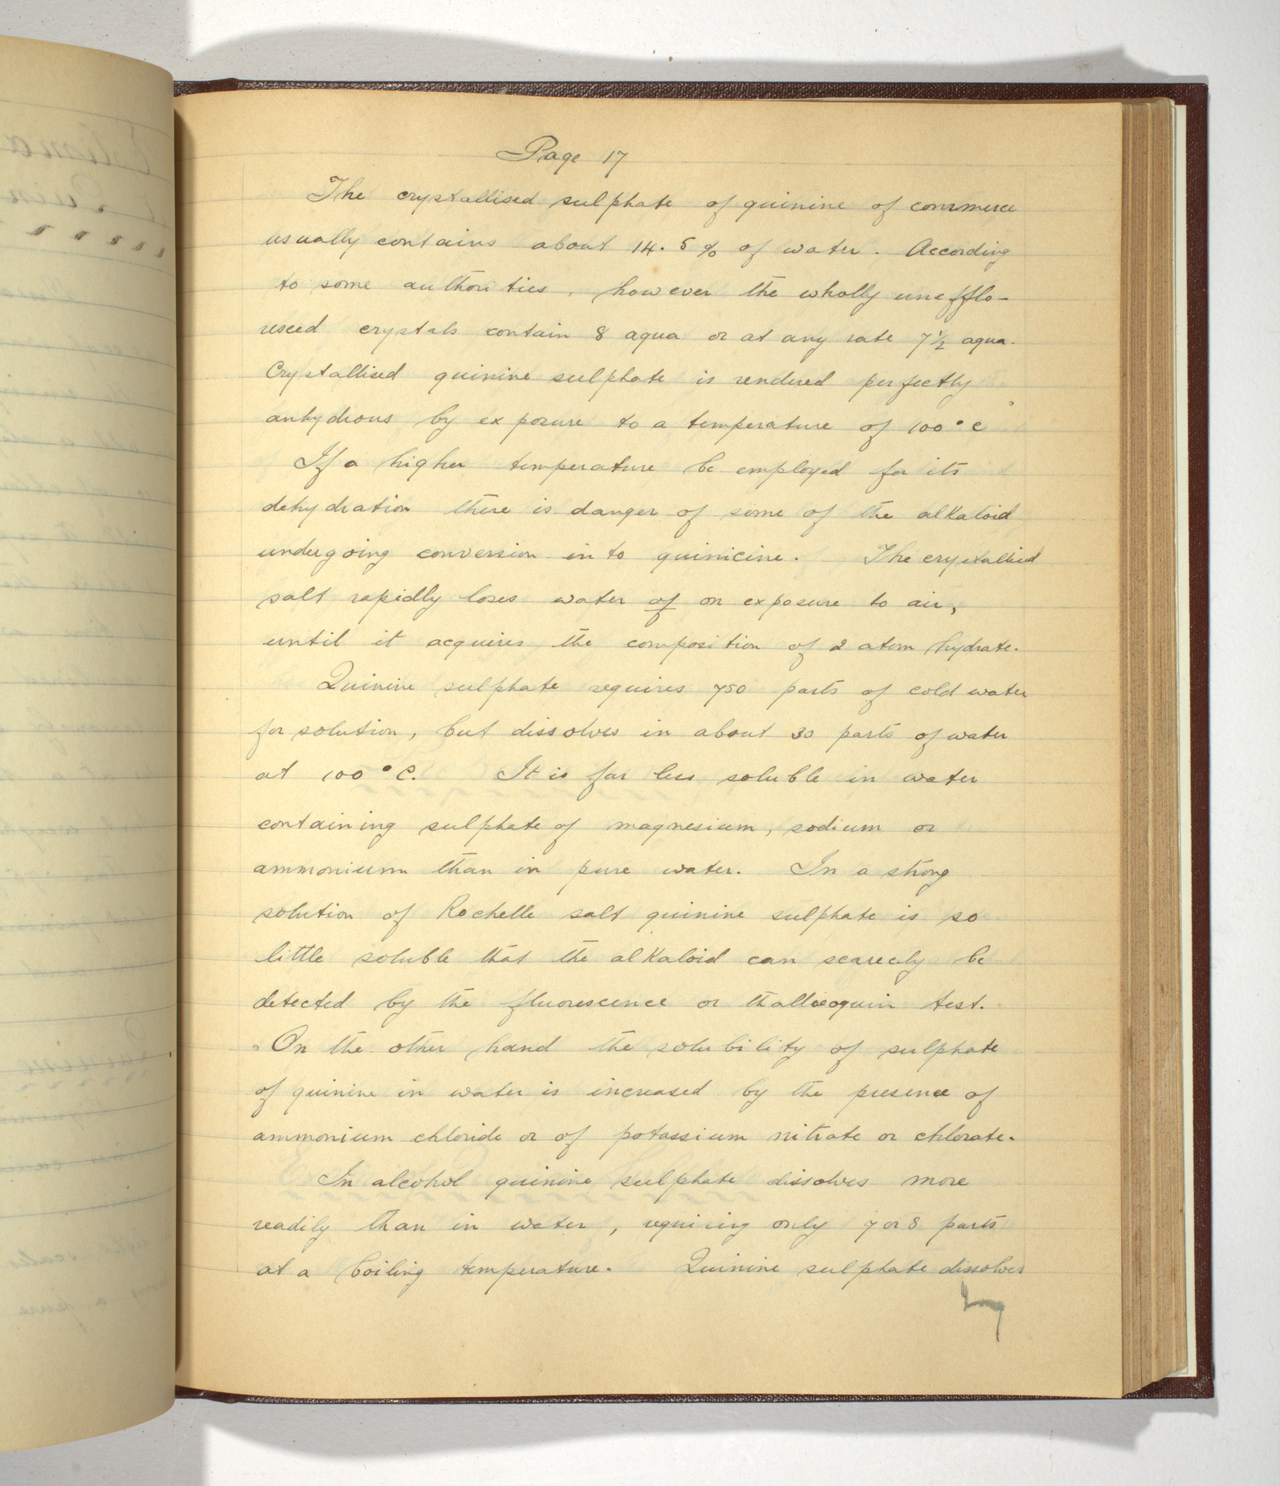 Page 17
The crystallised sulphate of quinine of commerce
usually contains about 14.5% of water. According
to some authorities, however the wholly unefflo-
resced crystals contain 8 aqua or at any rate 7½ aqua.
Crystallised quinine sulphate is rendered perfectly
anhydrous by exposure to a temperature of 100°C
If a higher temperature be employed for its
dehydration there is danger of some of the alkaloid
undergoing conversion into quinicine. The crystallised
salt rapidly loses water of on exposure to air,
until it acquires the composition of 2 atom hydrate.
Quinine sulphate requires 750 parts of cold water
for solution, but dissolves in about 30 parts of water
at 100°C. It is far less soluble in water
containing sulphate of magnesium, sodium or
ammonium than in pure water. In a strong
solution of Rochelle salt quinine sulphate is so
little soluble that the alkaloid can scarcely be
detected by the fluorescence or thalleioquin test.
On the other hand the solubility of sulphate
of quinine in water is increased by the presence of
ammonium chloride or of potassium nitrate or chlorate.
In alcohol quinine sulphate dissolves more
readily than in water, requiring only 7 or 8 parts
at a boiling temperature. Quinine sulphate dissolves